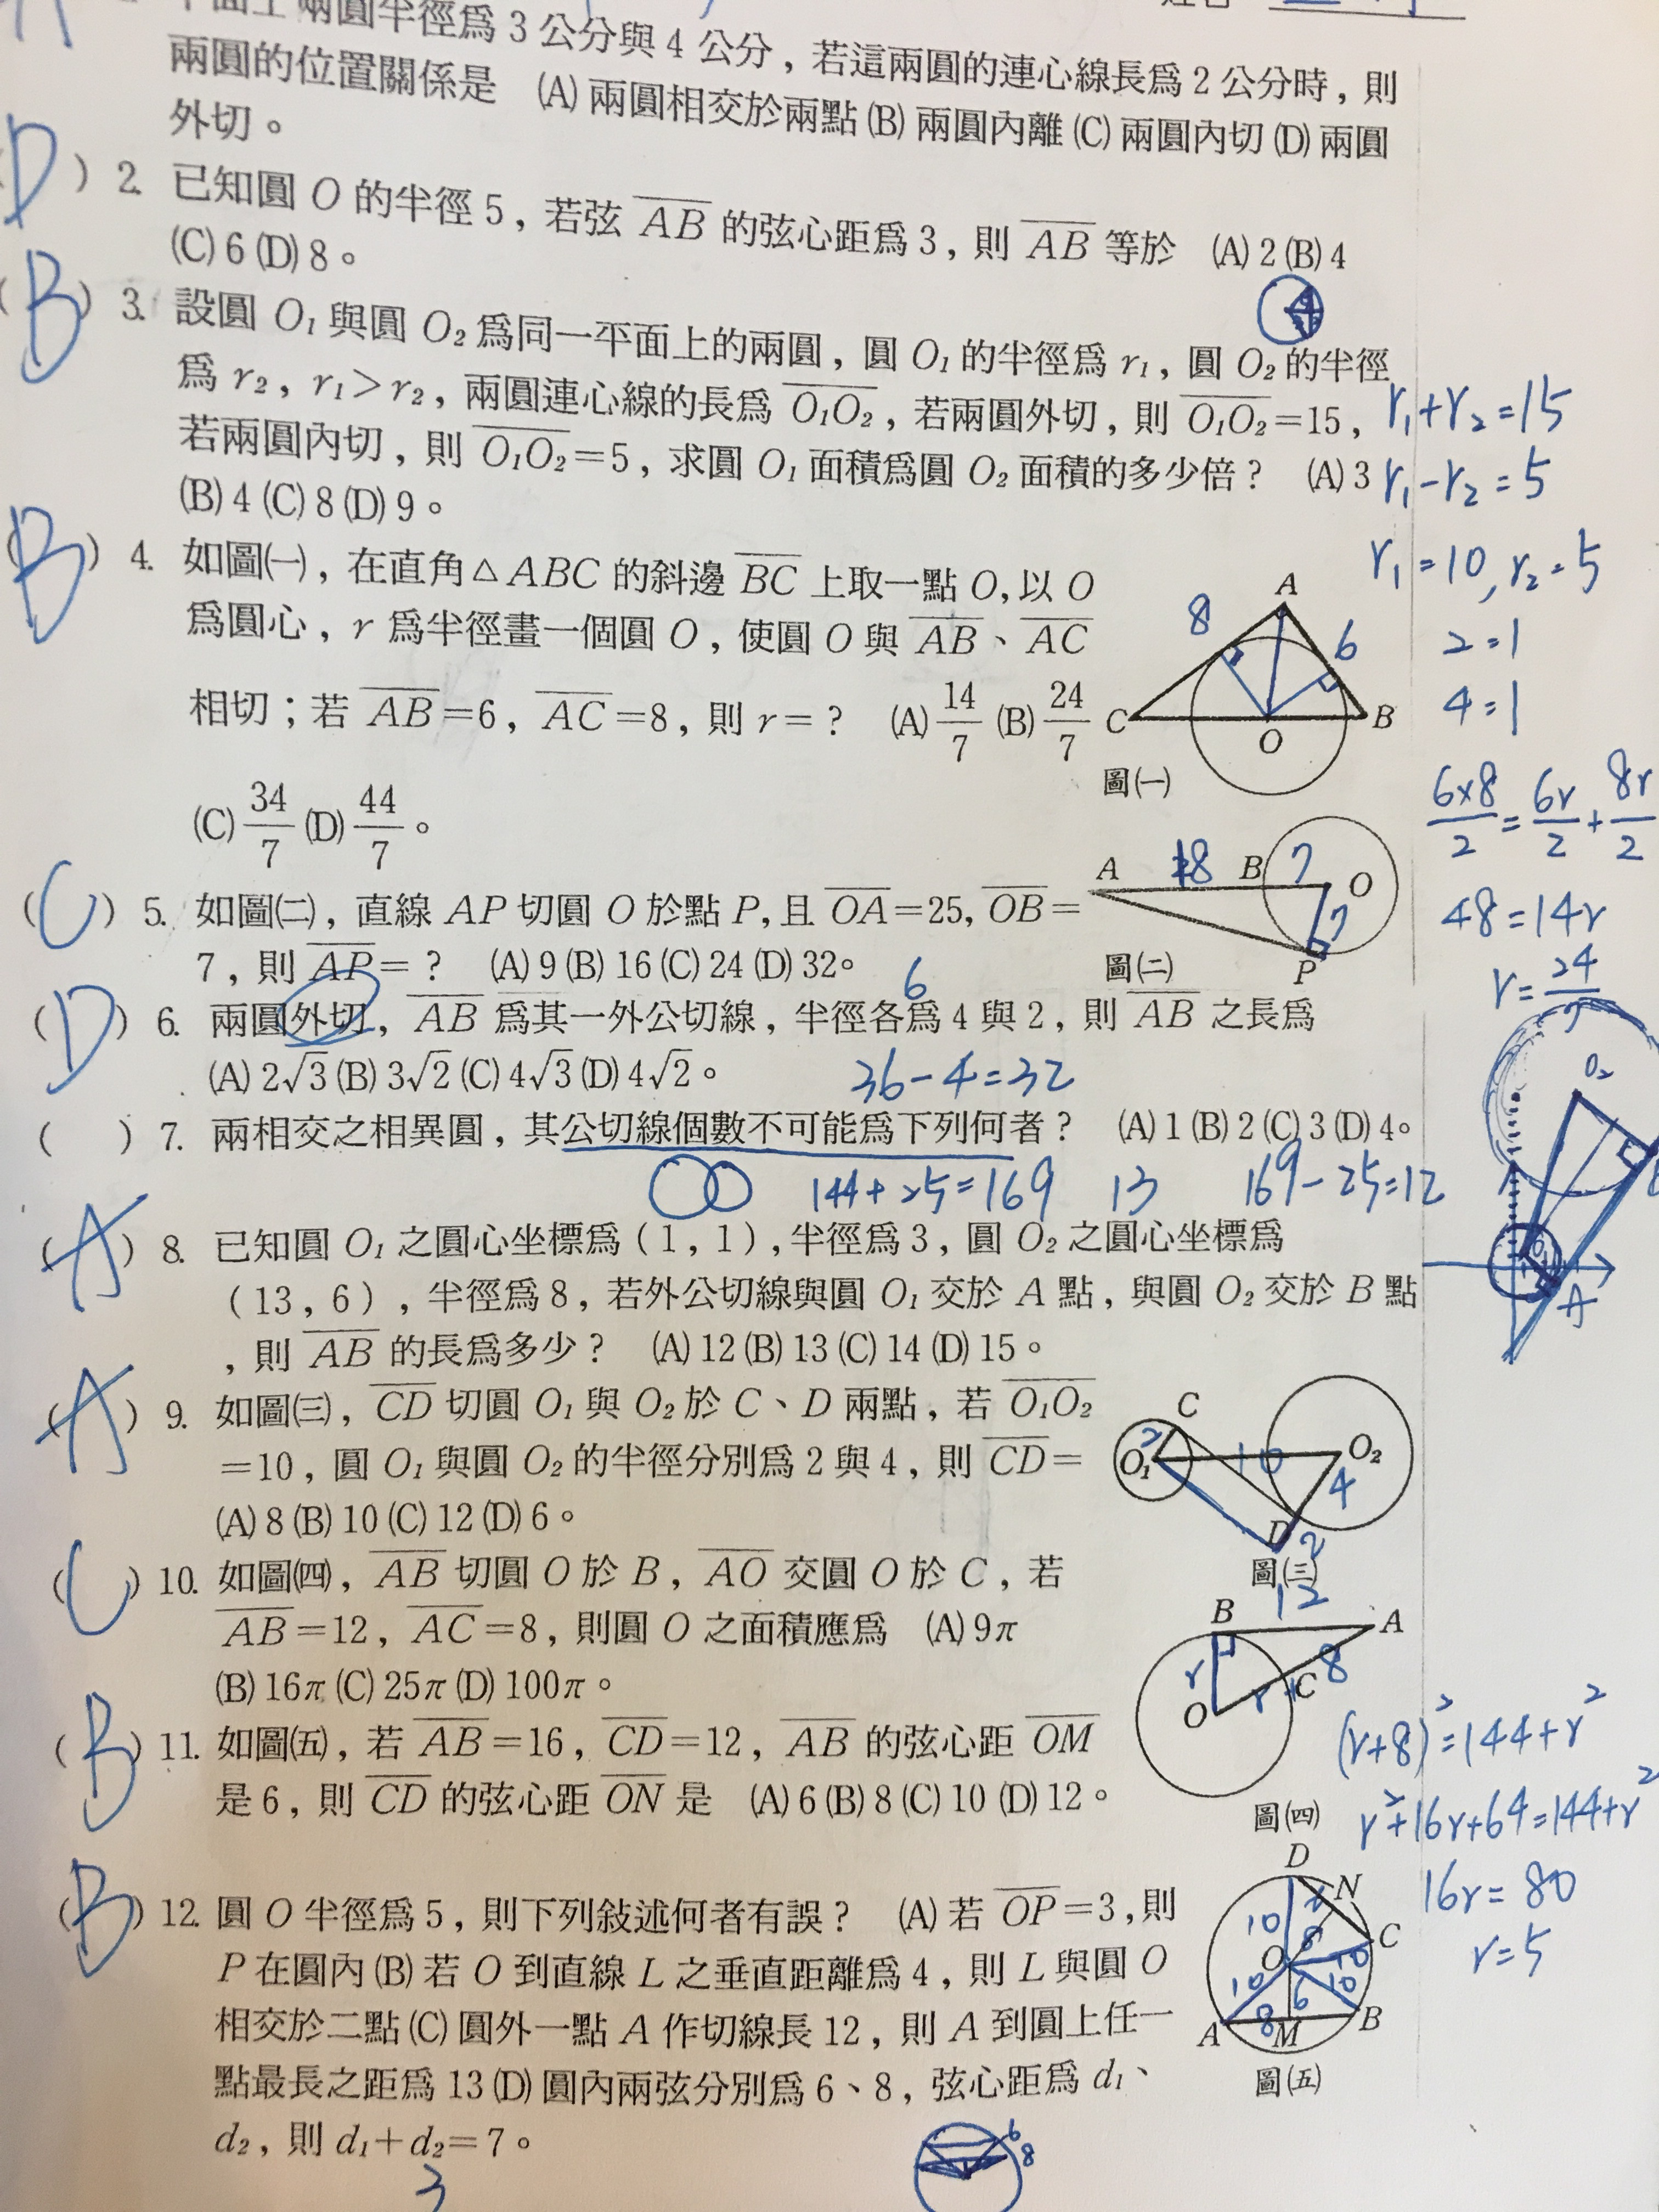 平面上兩圓半徑為3公分與4公分，若這兩圓的連心線長為2公分時，則
兩圓的位置關係是 (A)兩圓相交於兩點(B)兩圓內離(C)兩圓內切(D)兩圓
外切。
(D) 2. 已知圓O的半徑5，若弦AB的弦心距為3，則AB等於 (A)2(B)4
(C)6(D)8。
(B) 3. 設圓O₁與圓O₂為同一平面上的兩圓，圓O₁的半徑為r₁，圓O₂的半徑
為r₂，r₁>r₂，兩圓連心線的長為O₁O₂，若兩圓外切，則O₁O₂=15，
r₁+r₂=15
若兩圓內切，則O₁O₂=5，求圓O₁面積為圓O₂面積的多少倍？ (A)3
r₁-r₂=5
(B)4(C)8(D)9。
r₁=10, r₂=5
2:1
4:1
(B) 4. 如圖㈠，在直角△ABC的斜邊BC上取一點O,以O
為圓心，r為半徑畫一個圓O，使圓O與AB、AC
相切；若AB=6，AC=8，則r=？ (A)14/7 (B)24/7
(C)34/7 (D)44/7。
A
8
6
C
B
O
圖㈠
6×8/2=6r/2+8r/2
48=14r
r=24/7
(C) 5. 如圖㈡，直線AP切圓O於點P,且OA=25,OB=
7，則AP=？ (A)9(B)16(C)24(D)32。
A
18
B
7
O
7
P
圖㈡
(D) 6. 兩圓外切，AB為其一外公切線，半徑各為4與2，則AB之長為
6
(A)2√3(B)3√2(C)4√3(D)4√2。
36-4=32
( ) 7. 兩相交之相異圓，其公切線個數不可能為下列何者？ (A)1(B)2(C)3(D)4。
144+25=169 13 169-25=12
O₂
O₁
A
(A) 8. 已知圓O₁之圓心坐標為(1，1),半徑為3，圓O₂之圓心坐標為
(13，6)，半徑為8，若外公切線與圓O₁交於A點，與圓O₂交於B點
，則AB的長為多少？ (A)12(B)13(C)14(D)15。
(A) 9. 如圖㈢，CD切圓O₁與O₂於C、D兩點，若O₁O₂
=10，圓O₁與圓O₂的半徑分別為2與4，則CD=
(A)8(B)10(C)12(D)6。
C
2
O₁
10
O₂
4
D
2
圖㈢
(C) 10. 如圖㈣，AB切圓O於B，AO交圓O於C，若
AB=12，AC=8，則圓O之面積應為 (A)9π
(B)16π(C)25π(D)100π。
12
B
A
r
8
C
O
r
圖㈣
(r+8)²=144+r²
r²+16r+64=144+r²
16r=80
r=5
(B) 11. 如圖㈤，若AB=16，CD=12，AB的弦心距OM
是6，則CD的弦心距ON是 (A)6(B)8(C)10(D)12。
(B) 12. 圓O半徑為5，則下列敍述何者有誤？ (A)若OP=3,則
P在圓內(B)若O到直線L之垂直距離為4，則L與圓O
相交於二點(C)圓外一點A作切線長12，則A到圓上任一
點最長之距為13(D)圓內兩弦分別為6、8，弦心距為d₁、
d₂，則d₁+d₂=7。
3
6
8
D
N
10
8
C
O
10
10
10
6
8
A
M
B
圖㈤